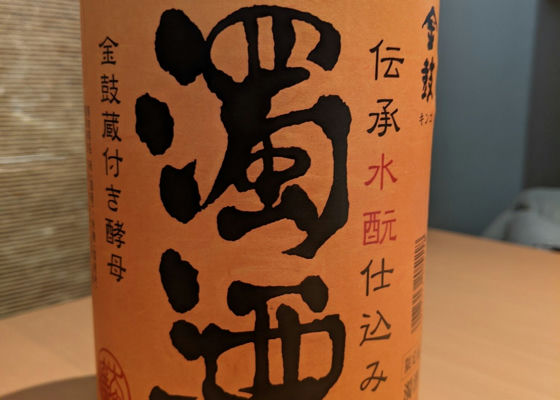 金鼓
キンコ
伝承水酛仕込み
濁酒
金鼓蔵付き酵母